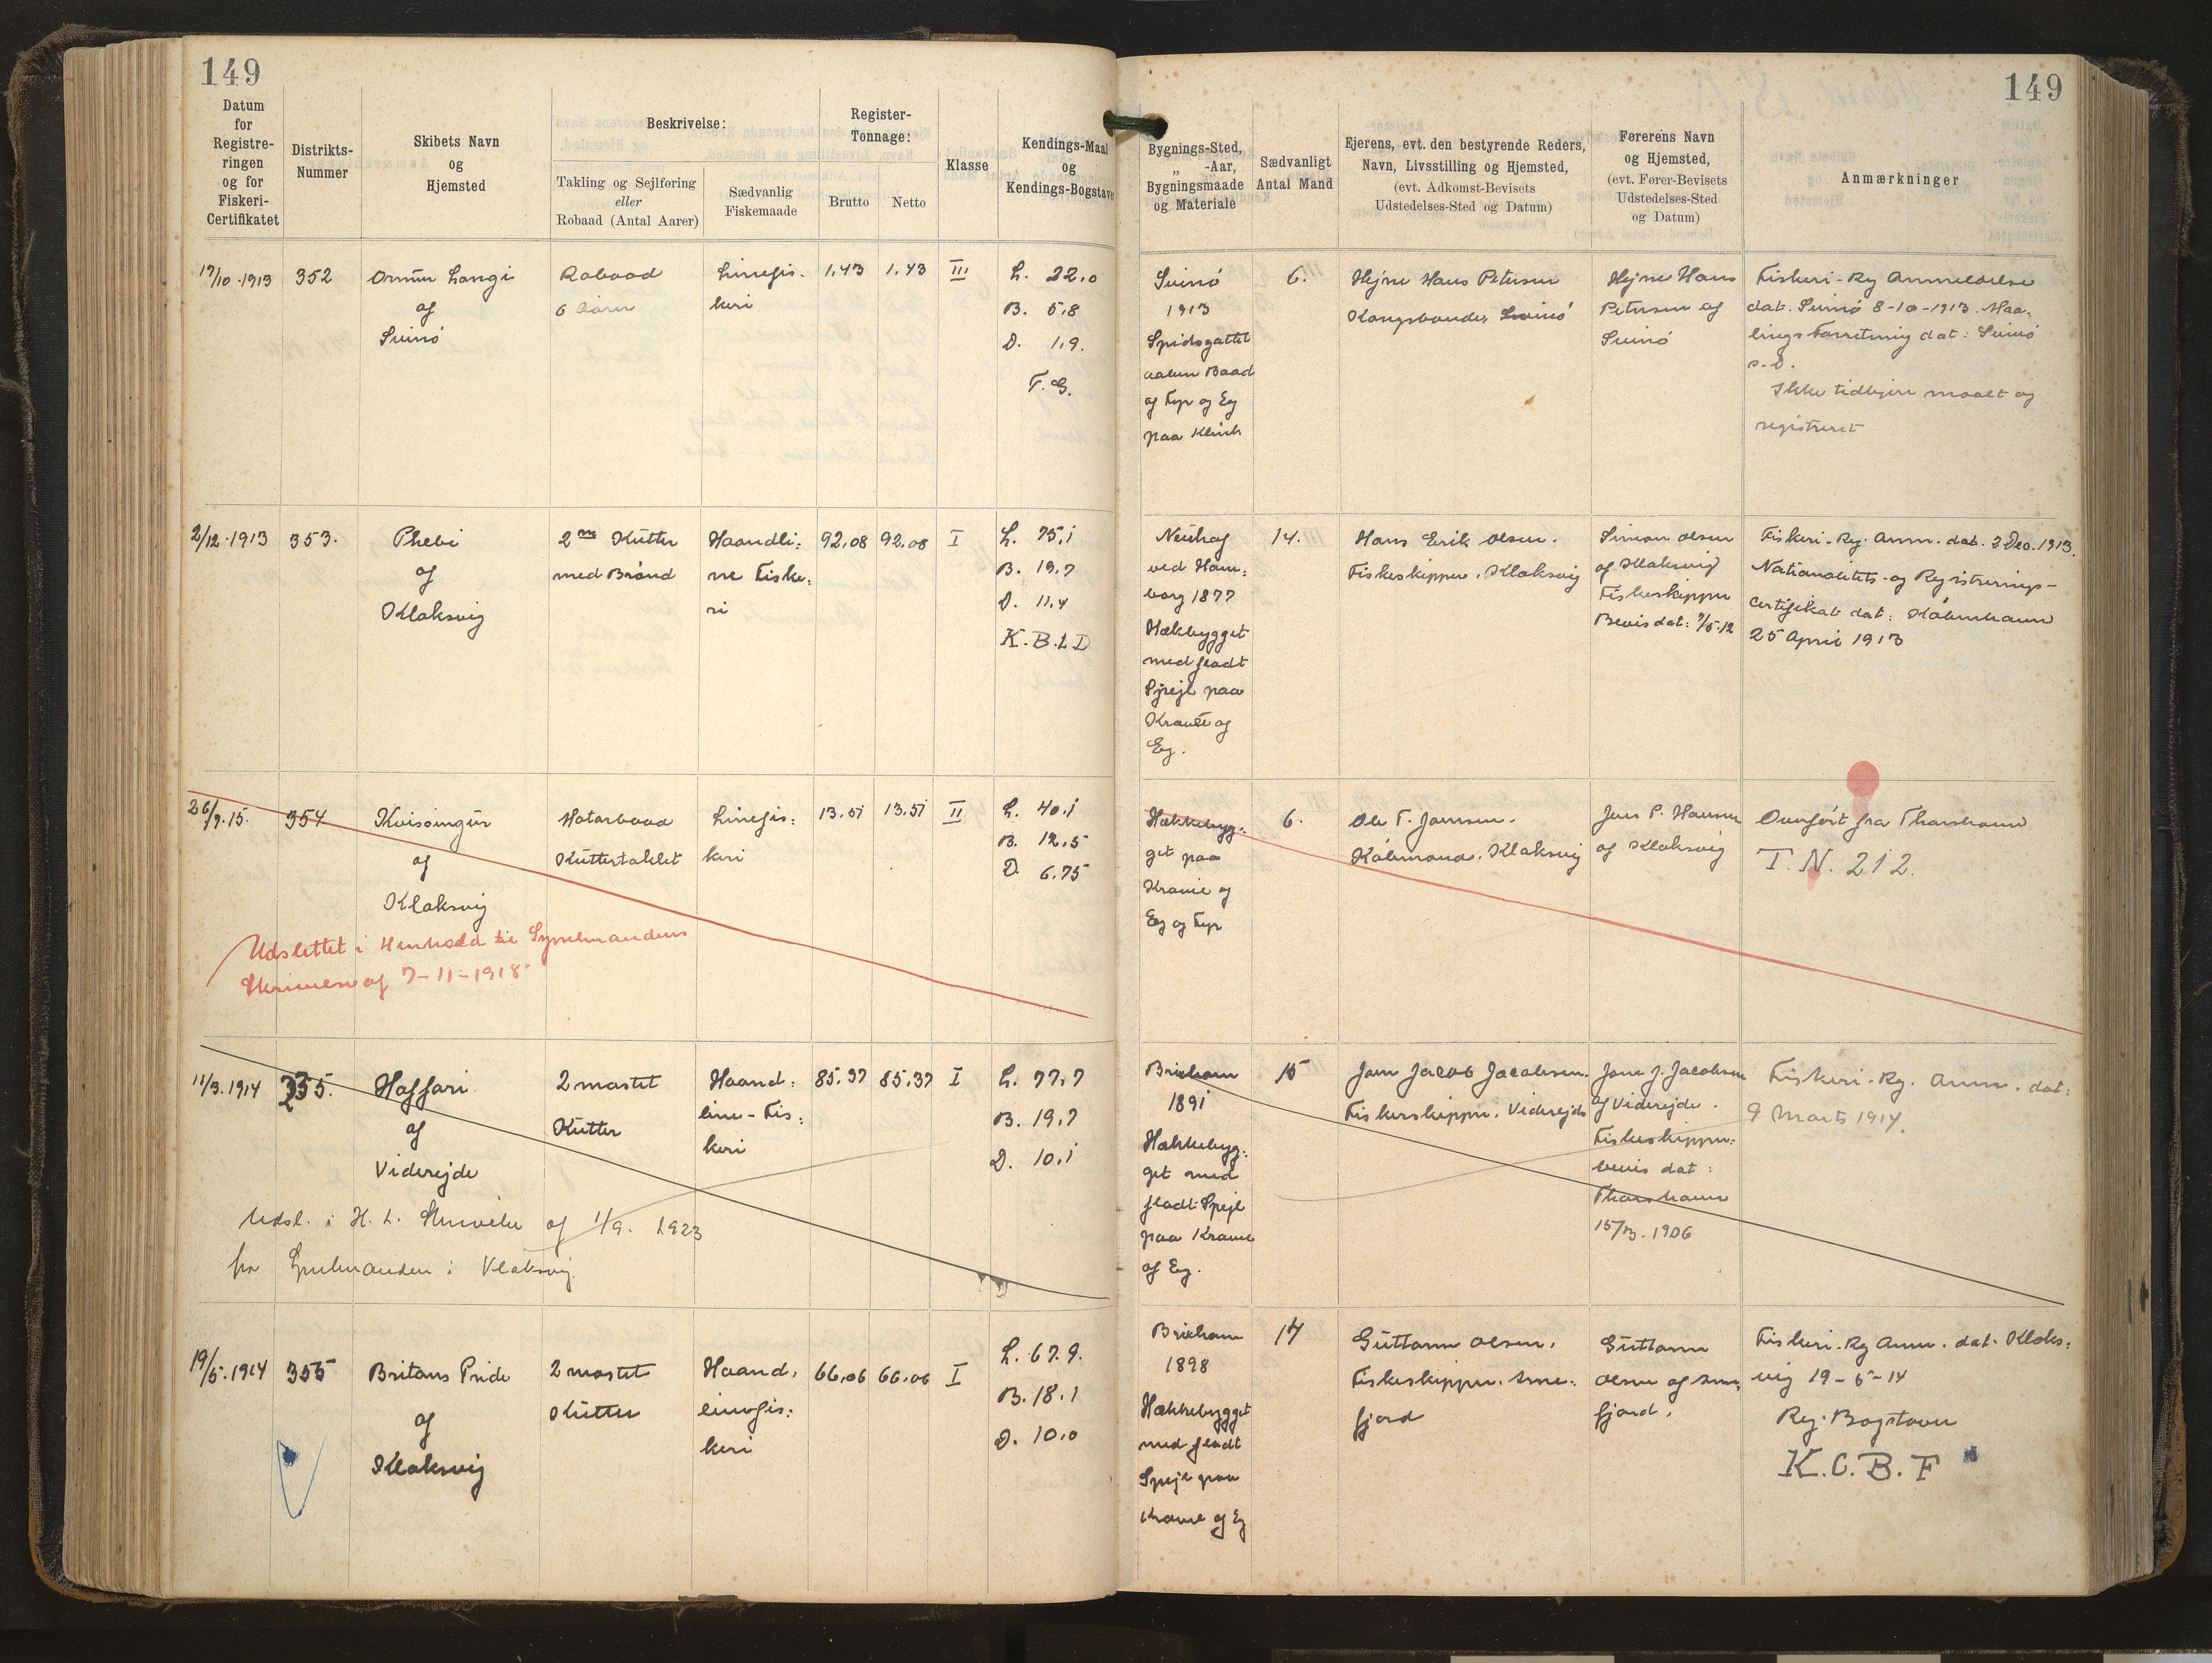 149
149
Datum for Registreringen og for Fiskeri-Certifikatet
Distrikts-Nummer
Skibets Navn og Hjemsted
Beskrivelse:
Takling og Sejlføring eller Robaad (Antal Aarer)
Sædvanlig Fiskemaade
Register-Tonnage:
Brutto
Netto
Klasse
Kendings-Maal og Kendings-Bogstaver
Bygnings-Sted, „ -Aar, Bygningsmaade og Materiale
Sædvanligt Antal Mand
Ejerens, evt. den bestyrende Reders, Navn, Livsstilling og Hjemsted, (evt. Adkomst-Bevisets Udstedelses-Sted og Datum)
Førerens Navn og Hjemsted, (evt. Fører-Bevisets Udstedelses-Sted og Datum)
Anmærkninger
17/10-1913
352
Ormur Langi
af
Svinø
Robaad
6 Aarer
Linefis-
keri
1,43
1,43
III
L. 22,0
B. 5,8
D. 1,9.
F. G.
Svinø
1913
Spidsgattet
aaben Baad
af Fyr og Eg
paa Klink
6.
Hejne Hans Petersen
Kongsbonde, Svinø
Hejne Hans
Petersen af
Svinø
Fiskeri-Reg Anmeldelse
dat. Svinø 8-10-1913. Maa-
lings Forretning dat: Svinø
s.D.
Ikke tidligere maalt og
registreret
2/12-1913
353.
Phebi
af
Klaksvig
2 m Kutter
med Brønd
Haandli:
ne Fiske:
ri
92,08
92,08
I
L. 75,1
B. 19,7
D. 11,4
K.B.L.D
Neuhof
ved Ham:
borg 1877
Hækbygget
med fladt
Spejl paa
Kravel og
Eg.
14.
Hans Erik Olsen.
Fiskeskipper, Klaksvig
Simon Olsen
af Klaksvig
Fiskeskipper
Bevis dat: 7/5-12
Fiskeri-Reg. Anm. dat. 2 Dec. 1913.
Nationalitets-og Registrerings-
Certifikat dat: København
25 April 1913
26/9.15.
354
Kvissingur
af
Klaksvig
Motorbaad
Kuttertaklet
Linefis:
keri
13.51
13.51
II
L. 40,1
B. 12,5
D. 6,75
Udslettet i Henhold til Sysselmandens
Skrivelse af 7-11-1918
Hækkebyg:
get paa
Kravel og
Eg og Fyr
6.
Ole F. Joensen.
Købmand, Klaksvig
Jens P. Hansen
af Klaksvig
Overført fra Thorshavn
T.N. 212.
11/3.1914
355.
Haffari
af
Viderejde
2 mastet
Kutter
Haand:
line-Fis:
keri
85.37
85.37
I
L. 77,7
B. 19,7
D. 10,1
Udsl. i H. t. Skrivelse af 1/9. 1923
fra Sysselmanden i Klaksvig.
Brixham
1891
Hækkebyg:
get med
fladt Spejl
paa Kravel
af Eg.
15
Joen Jacob Jacobsen.
Fiskerskipper, Viderejde
Joen J. Jacobsen
af Viderejde.
Fiskeskipper:
bevis dat:
Thorshavn
15/3. 1906
Fiskeri-Reg. Anm. dat:
9 Marts 1914.
19/5.1914
355
Britans Pride
af
Klaksvig
2 mastet
Kutter
Haand:
linefis:
keri
66,06
66,06
I
L. 67.9.
B. 18.1
D. 10,0
Brixham
1898
Hækkebygget
med fladt
Spejl paa
Kravel af Eg
17
Guttorm Olsen,
Fiskeskipper, Arne:
fjord
Guttorm
Olsen af Arne
fjord.
Fiskeri-Reg Anm. dat. Klaks:
vig 19-5-14
Reg. Bogstaver
K.C.B.F